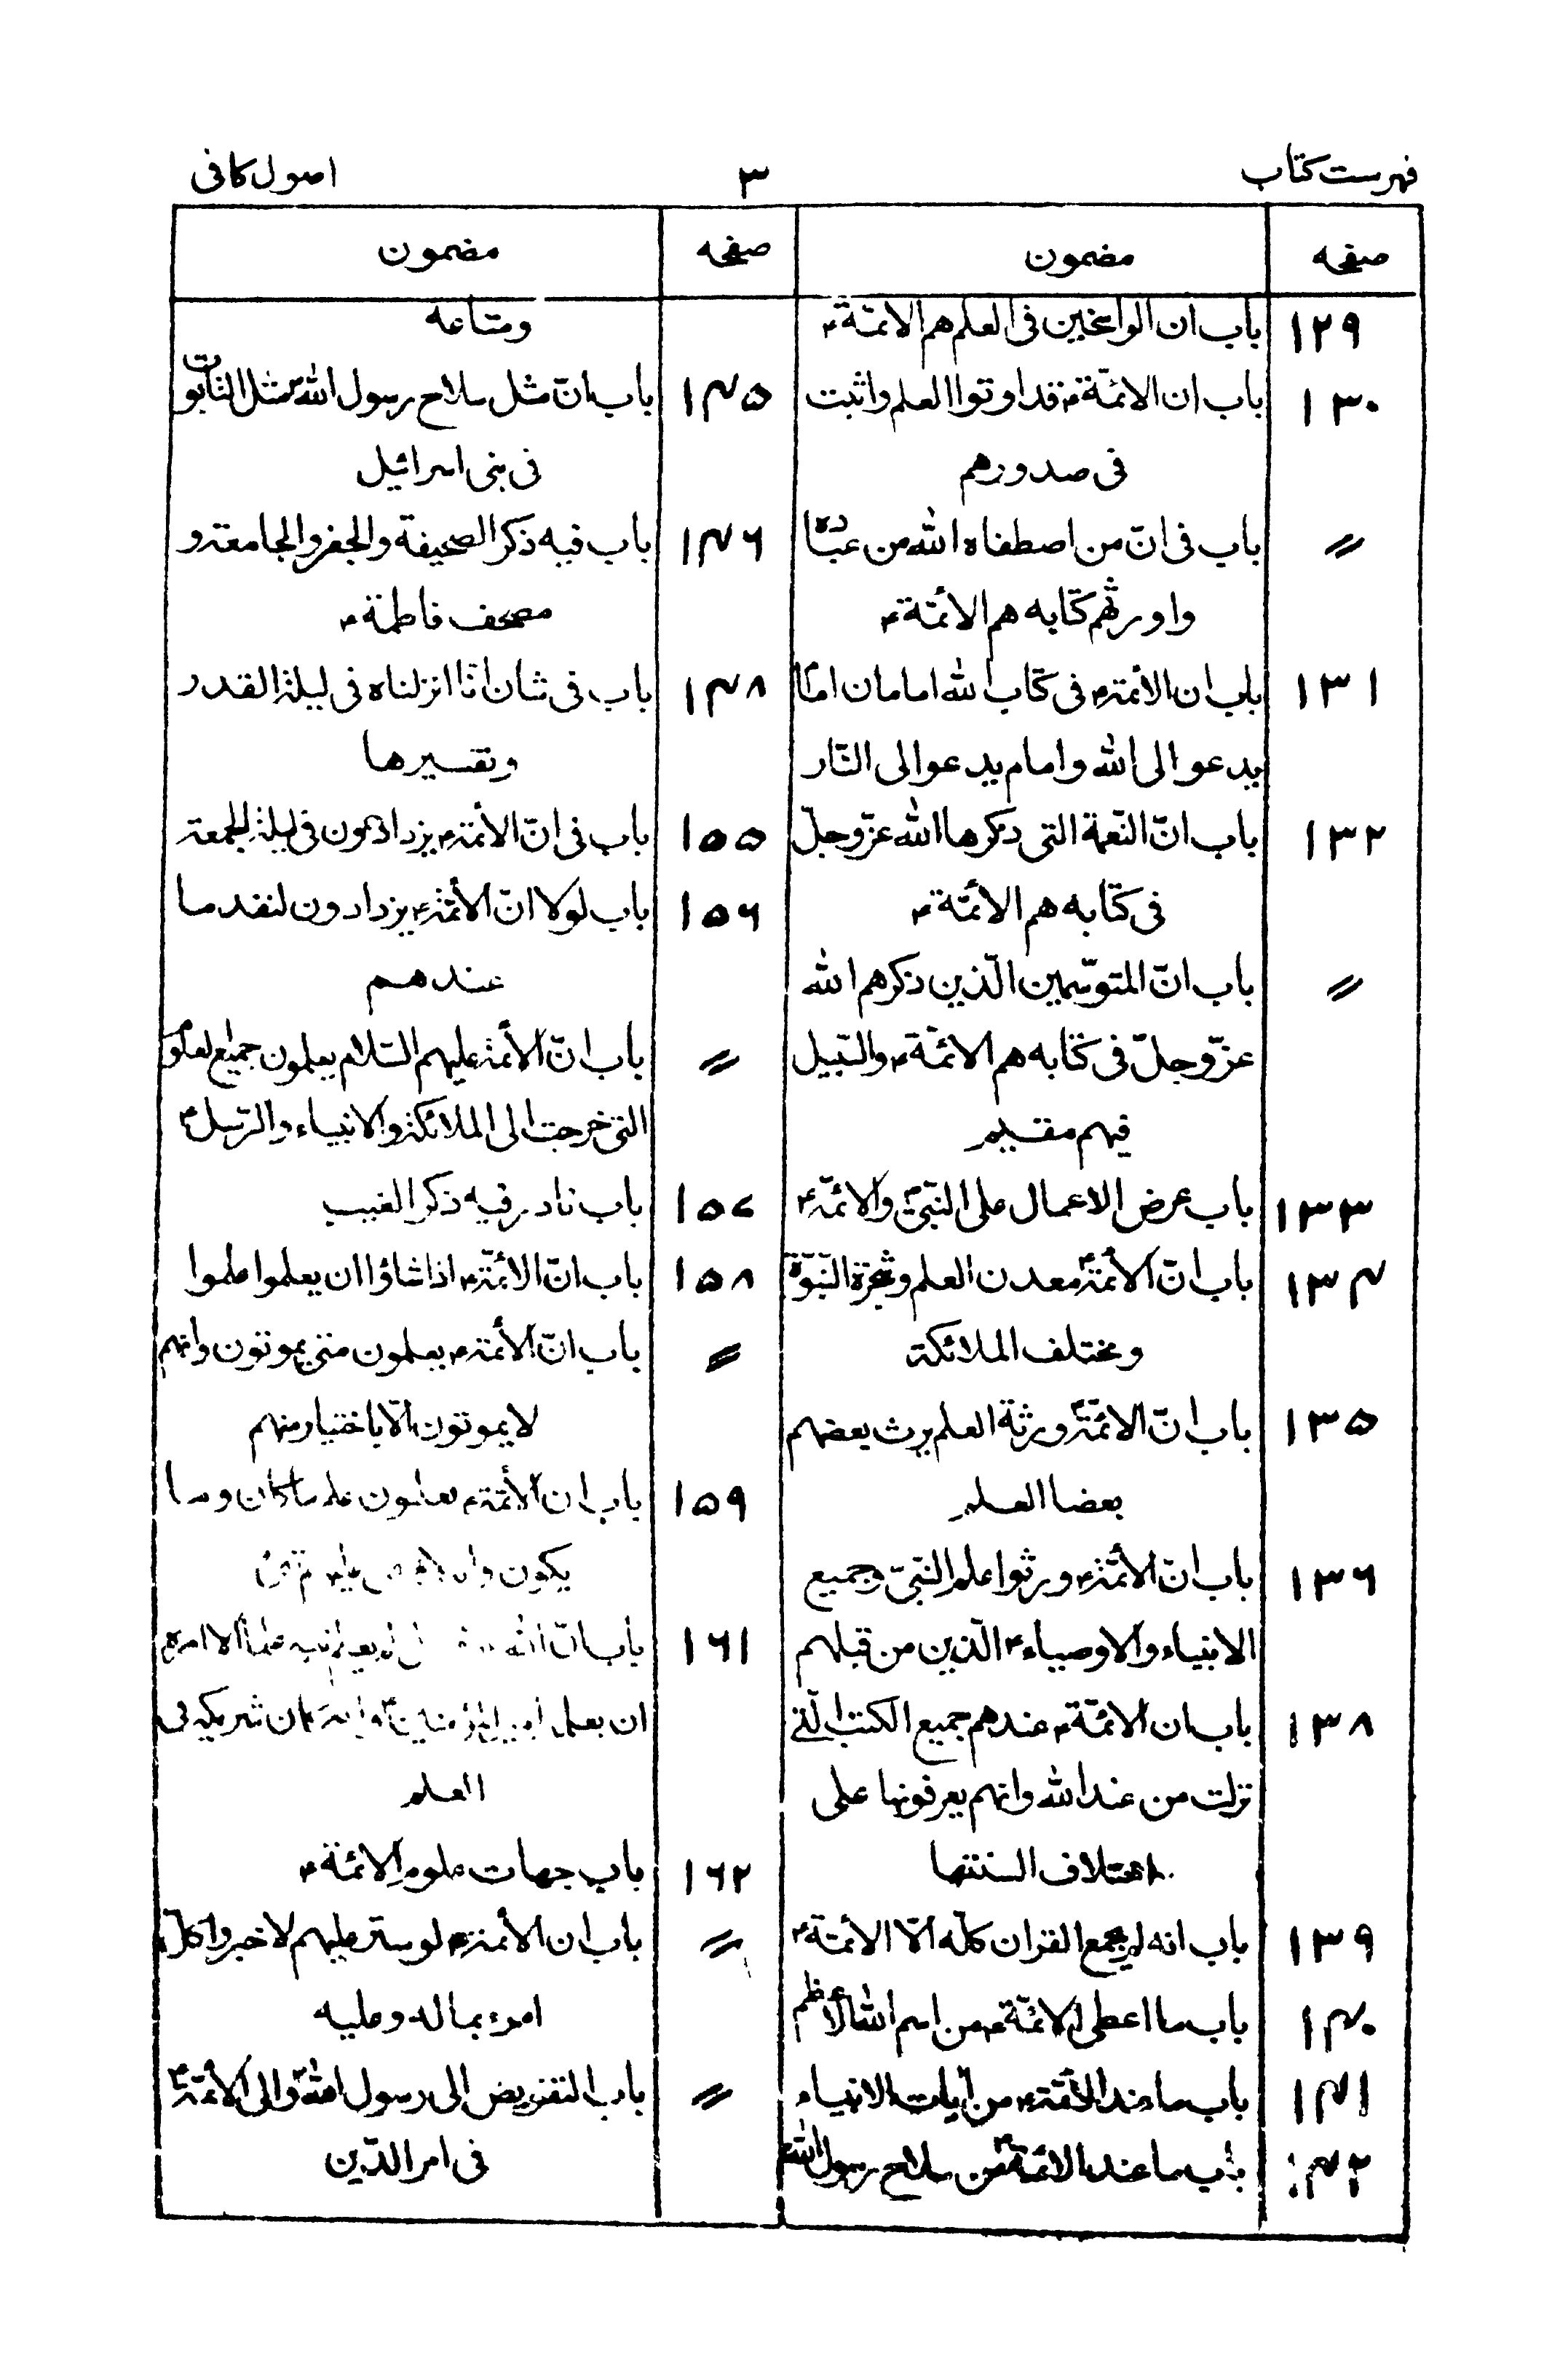 فهرست كتاب
٣
اصول كافى
صفحه
مضمون
١٢٩
باب ان الراسخين فى العلم هم الائمّة ؑ
١٣٠
باب ان الائمّة ؑ قد اوتوا العلم واثبت
فى صدورهم
〃
باب فى انّ من اصطفاه الله من عباده
واورثهم كتابه هم الأئمّة ؑ
١٣١
باب ان الأئمّة ؑ فى كتاب الله امامان امام
يدعو الى الله وامام يدعو الى النّار
١٣٢
باب انّ النّعمة التى ذكرها الله عزّوجلّ
فى كتابه هم الأئمّة ؑ
〃
باب انّ المتوسّمين الّذين ذكرهم الله
عزّوجلّ فى كتابه هم الائمّة ؑ والسّبيل
فيهم مقيم
١٣٣
باب عرض الاعمال على النّبىّ ؐ والائمّة ؑ
١٣٤
باب انّ الأئمّة ؑ معدن العلم وشجرة النّبوّة
ومختلف الملائكة
١٣٥
باب انّ الائمّة ؑ ورثة العلم يرث بعضهم
بعضا العلم
١٣٦
باب انّ الأئمّة ؑ ورثوا علم النّبىّ وجميع
الانبياء والاوصياء ؑ الّذين من قبلهم
١٣٨
باب ان الائمّة ؑ عندهم جميع الكتب الّتى
نزلت من عند الله وانهم يعرفونها على
اختلاف السنتها
١٣٩
باب انه لم يجمع القران كلّه الّا الأئمّة ؑ
١٤٠
باب ما اعطى الائمّة ؑ من اسم الله الاعظم
١٤١
باب ما عند الأئمّة ؑ من آيات الانبياء
١٤٢
باب ما عند الائمّة ؑ من سلاح رسول الله ؐ
صفحه
مضمون
ومتاعه
١٤٥
باب انّ مثل سلاح رسول الله ؐ مثل التابوت
فى بنى اسرائيل
١٤٦
باب فيه ذكر الصحيفة والجفر والجامعة و
مصحف فاطمة ؑ
١٤٨
باب فى شان انّا انزلناه فى ليلة القدر
وتفسيرها
١٥٥
باب فى انّ الأئمّة ؑ يزدادون فى ليلة الجمعة
١٥٦
باب لولا انّ الأئمّة ؑ يزدادون لنفد ما
عندهم
〃
باب انّ الأئمّة عليهم السّلام يعلمون جميع العلوم
التى خرجت الى الملائكة والانبياء والرّسل ؑ
١٥٧
باب نادر فيه ذكر الغيب
١٥٨
باب انّ الائمّة ؑ اذا شاؤا ان يعلموا علموا
〃
باب انّ الأئمّة ؑ يعلمون متى يموتون وانهم
لا يموتون الّا باختيار منهم
١٥٩
باب ان الأئمّة ؑ يعلمون علم ما كان وما
يكون
١٦١
باب انّ الله لم يعلم نبيه علما الا امره
ان يعلمه امير المؤمنين ؑ وانه كان شريكه فى
العلم
١٦٢
باب جهات علوم الائمّة ؑ
〃
باب ان الأئمّة ؑ لو ستر عليهم لاخبروا كلّ
امرء بما له وعليه
〃
باب التفويض الى رسول الله ؐ والى الأئمّة ؑ
فى امر الدّين